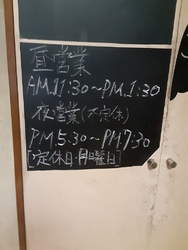 昼営業
AM.11:30～PM.1:30
夜営業(不定休)
PM.5:30～PM7:30
[定休日:月曜日]